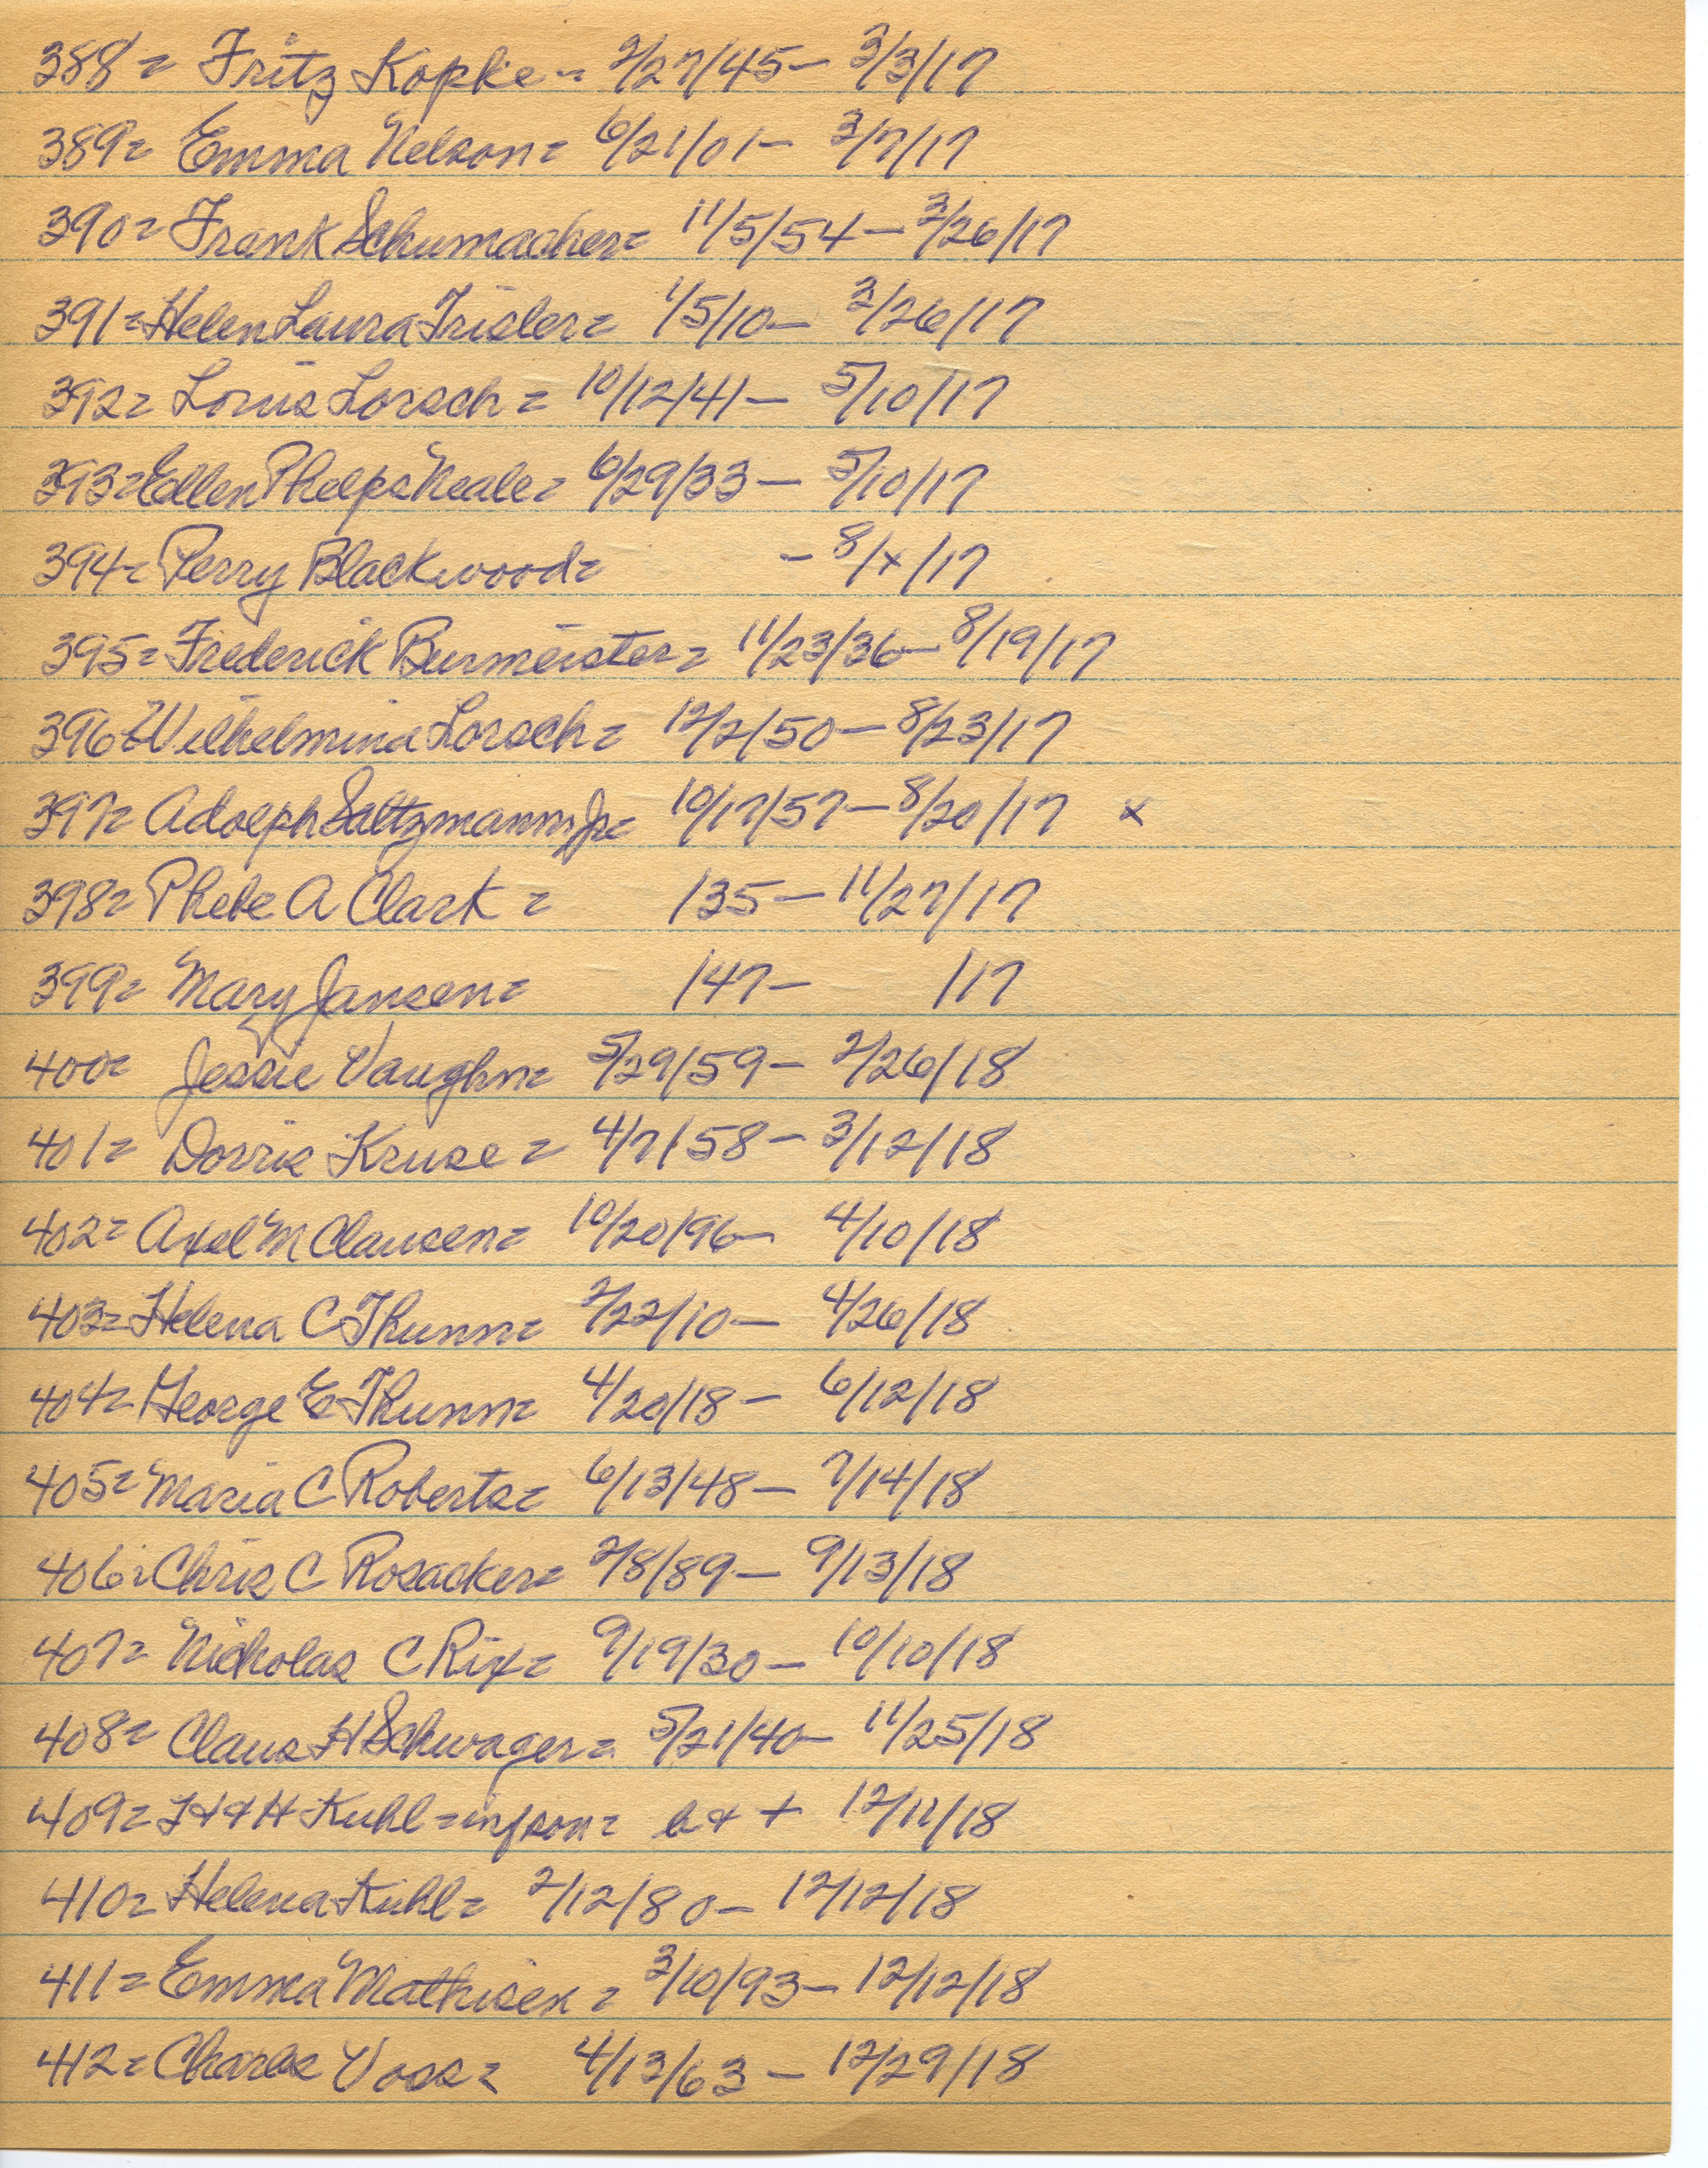 388= Fritz Kopke - 2/27/45 - 3/3/17
389= Emma Nelson= 6/21/01 - 3/7/17
390= Frank Schumacher= 11/5/54 - 3/26/17
391= Helen Laura Trisler= 1/5/10 - 3/26/17
392= Louis Lorsch = 10/12/41 - 5/10/17
393= Ellen Phelps Neale= 6/29/33 - 5/10/17
394= Perry Blackwood= - 8/x/17
395= Frederick Burmeister= 11/23/36 - 8/19/17
396= Wilhelmina Lorsch= 12/2/50 - 8/23/17
397= Adolph Saltzmann Jr= 10/17/57 - 8/20/17 x
398= Phebe A Clark = /35 - 11/27/17
399= Mary Jansen= /47 - /17
400= Jessie Vaughn= 5/29/59 - 2/26/18
401= Dorris Kruse = 4/7/58 - 3/12/18
402= Axel M Clausen= 10/20/96 - 4/10/18
403= Helena C Thunn= 2/22/10 - 4/26/18
404= George E Thunn= 4/20/18 - 6/12/18
405= Maria C Roberts= 6/13/48 - 7/14/18
406= Chris C Rosacker= 2/8/89 - 9/13/18
407= Nicholas C Rix= 9/19/30 - 10/10/18
408= Claus H Schwager= 5/21/40 - 11/25/18
409= H & H Kuhl = inf son= b & + 12/11/18
410= Helena Kuhl= 2/12/80 - 12/12/18
411= Emma Mathisen = 3/10/93 - 12/12/18
412= Charles Voss= 4/13/63 - 12/29/18